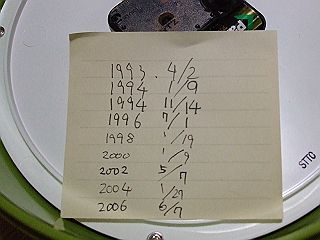 1993. 4/2
1994 1/9
1994 11/14
1996 7/1
1998 1/19
2000 1/9
2002 5/7
2004 1/27
2006 6/7
STTO